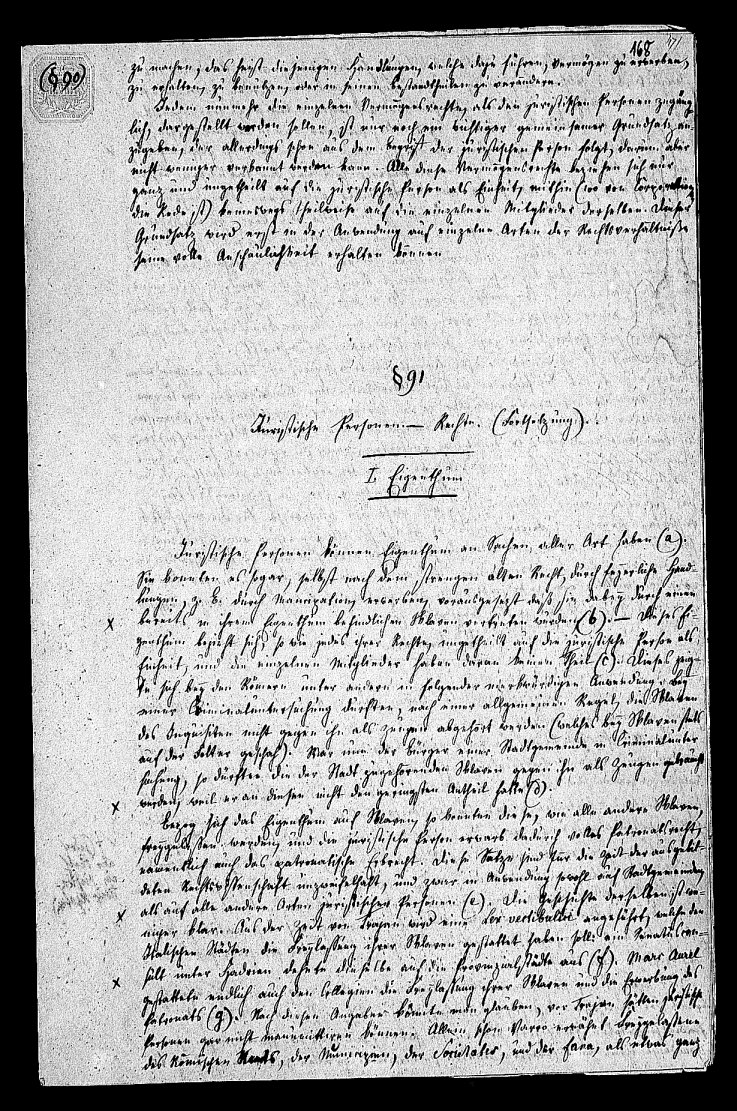 168
(§ 90)
zu machen, das heißt diejenigen Handlungen, welche dazu führen, Vermögen zu erwerben,
zu erhalten, zu benützen, oder in seinen Bestandtheilen zu verändern.
Indem nunmehr die einzelnen Vermögensrechte, als den juristischen Personen zugäng-
lich, dargestellt werden sollen, ist nur noch ein wichtiger gemeinsamer Grundsatz an-
zugeben, der allerdings schon aus dem Begriff der juristischen Person folgt, darum aber
nicht weniger verkannt werden kann. Alle diese Vermögensrechte beziehen sich nur
ganz und ungetheilt auf die juristische Person als Einheit, mithin (wo von Corporationen
die Rede ist) keineswegs theilweise auf die einzelnen Mitglieder derselben. Dieser
Grundsatz wird erst in der Anwendung auf einzelne Arten der Rechtsverhältnisse
seine volle Anschaulichkeit erhalten können
§ 91
Juristische Personen. — Rechte. (Fortsetzung).
I. Eigenthum
Juristische Personen können Eigenthum an Sachen aller Art haben (a).
Sie konnten es sogar, selbst nach dem strengen alten Recht, durch feyerliche Hand-
lungen, z. B. durch Mancipation, erwerben, vorausgesetzt daß sie dabey durch einen
bereits in ihrem Eigenthum befindlichen Sklaven vertreten werden (b). — Dieses Ei-
genthum bezieht sich, so wie jedes ihrer Rechte, ungetheilt auf die juristische Person als
Einheit, und die einzelnen Mitglieder haben daran keinen Theil (c). Dieses zeig-
te sich bey den Römern unter andern in folgender merkwürdigen Anwendung. Bey
einer Criminaluntersuchung durften, nach einer allgemeinen Regel, die Sklaven
des Inquisiten nicht gegen ihn als Zeugen abgehört werden (welches bey Sklaven stets
auf der Folter geschah). War nun der Bürger einer Stadtgemeinde in Criminalunter-
suchung, so durften die der Stadt zugehörenden Sklaven gegen ihn als Zeugen gebraucht
werden, weil er an diesen nicht den geringsten Antheil hatte (d).
Bezog sich das Eigenthum auf Sklaven, so konnten diese, wie alle andere Sklaven,
freygelassen werden, und die juristische Person erwarb dadurch volles Patronatsrecht,
namentlich auch das patronatische Erbrecht. Diese Sätze sind für die Zeit der ausgebil-
deten Rechtswissenschaft unzweifelhaft, und zwar in Anwendung sowohl auf Stadtgemeinden
als auf alle andere Arten juristischer Personen (e). Die Geschichte derselben ist we-
niger klar. Aus der Zeit von Trajan wird eine Lex vectibulici angeführt, welche den
Italischen Städten die Freylassung ihrer Sklaven gestattet haben soll; ein Senatuscon-
sult unter Hadrian dehnte dieselbe auf die Provinzialstädte aus (f). Marc Aurel
gestattete endlich auch den Collegien die Freylassung ihrer Sklaven und die Erwerbung des
Patronats (g). Nach diesen Angaben könnte man glauben, vor Trajan hätten juristische
Personen gar nicht manumittiren können. Allein schon Varro erwähnt Freygelassene
des Römischen Staats, der Municipien, der Societates, und der Fana, als etwas ganz